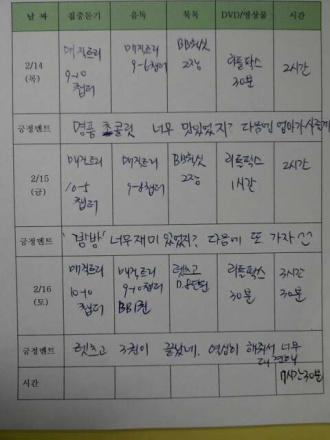 날 짜 집중듣기 음독 묵독 DVD/영상물 시간
2/14 (목)
매직트리 9-10 챕터
매직트리 9-6챕터
2장
리틀팍스 30분
2시간
긍정멘트 명품 초콜릿 너무 맛있었지? 다음에 엄마가
2/15 (금)
매직트리 10-5 챕터
매직트리 9-8챕터
2장
리틀팍스 1시간
2시간
긍정멘트 "캄밤" 너무 재미있었지? 다음에 또 가자 ^^
2/16 (토)
매직트리 10-10 챕터
매직트리 9-10챕터 BB1권
렛츠고
리틀팍스 30분
3시간 30분
긍정멘트 렛츠고 3권이 끝났네. 열심히 해줘서 너무 대견해
시간 7시간30분